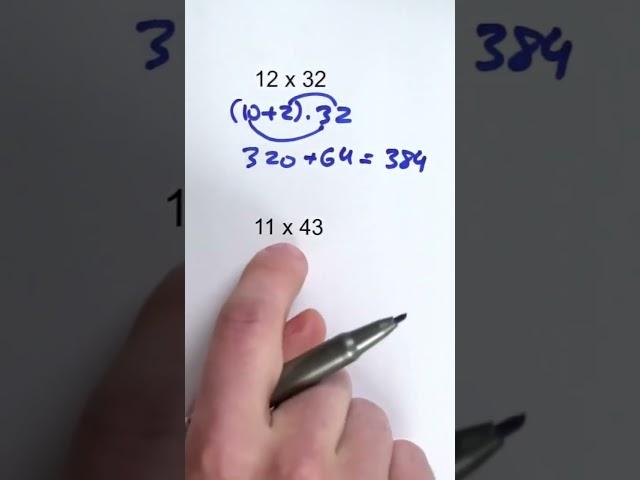 12 x 32
(10+2).32
320+64=384
11 x 43